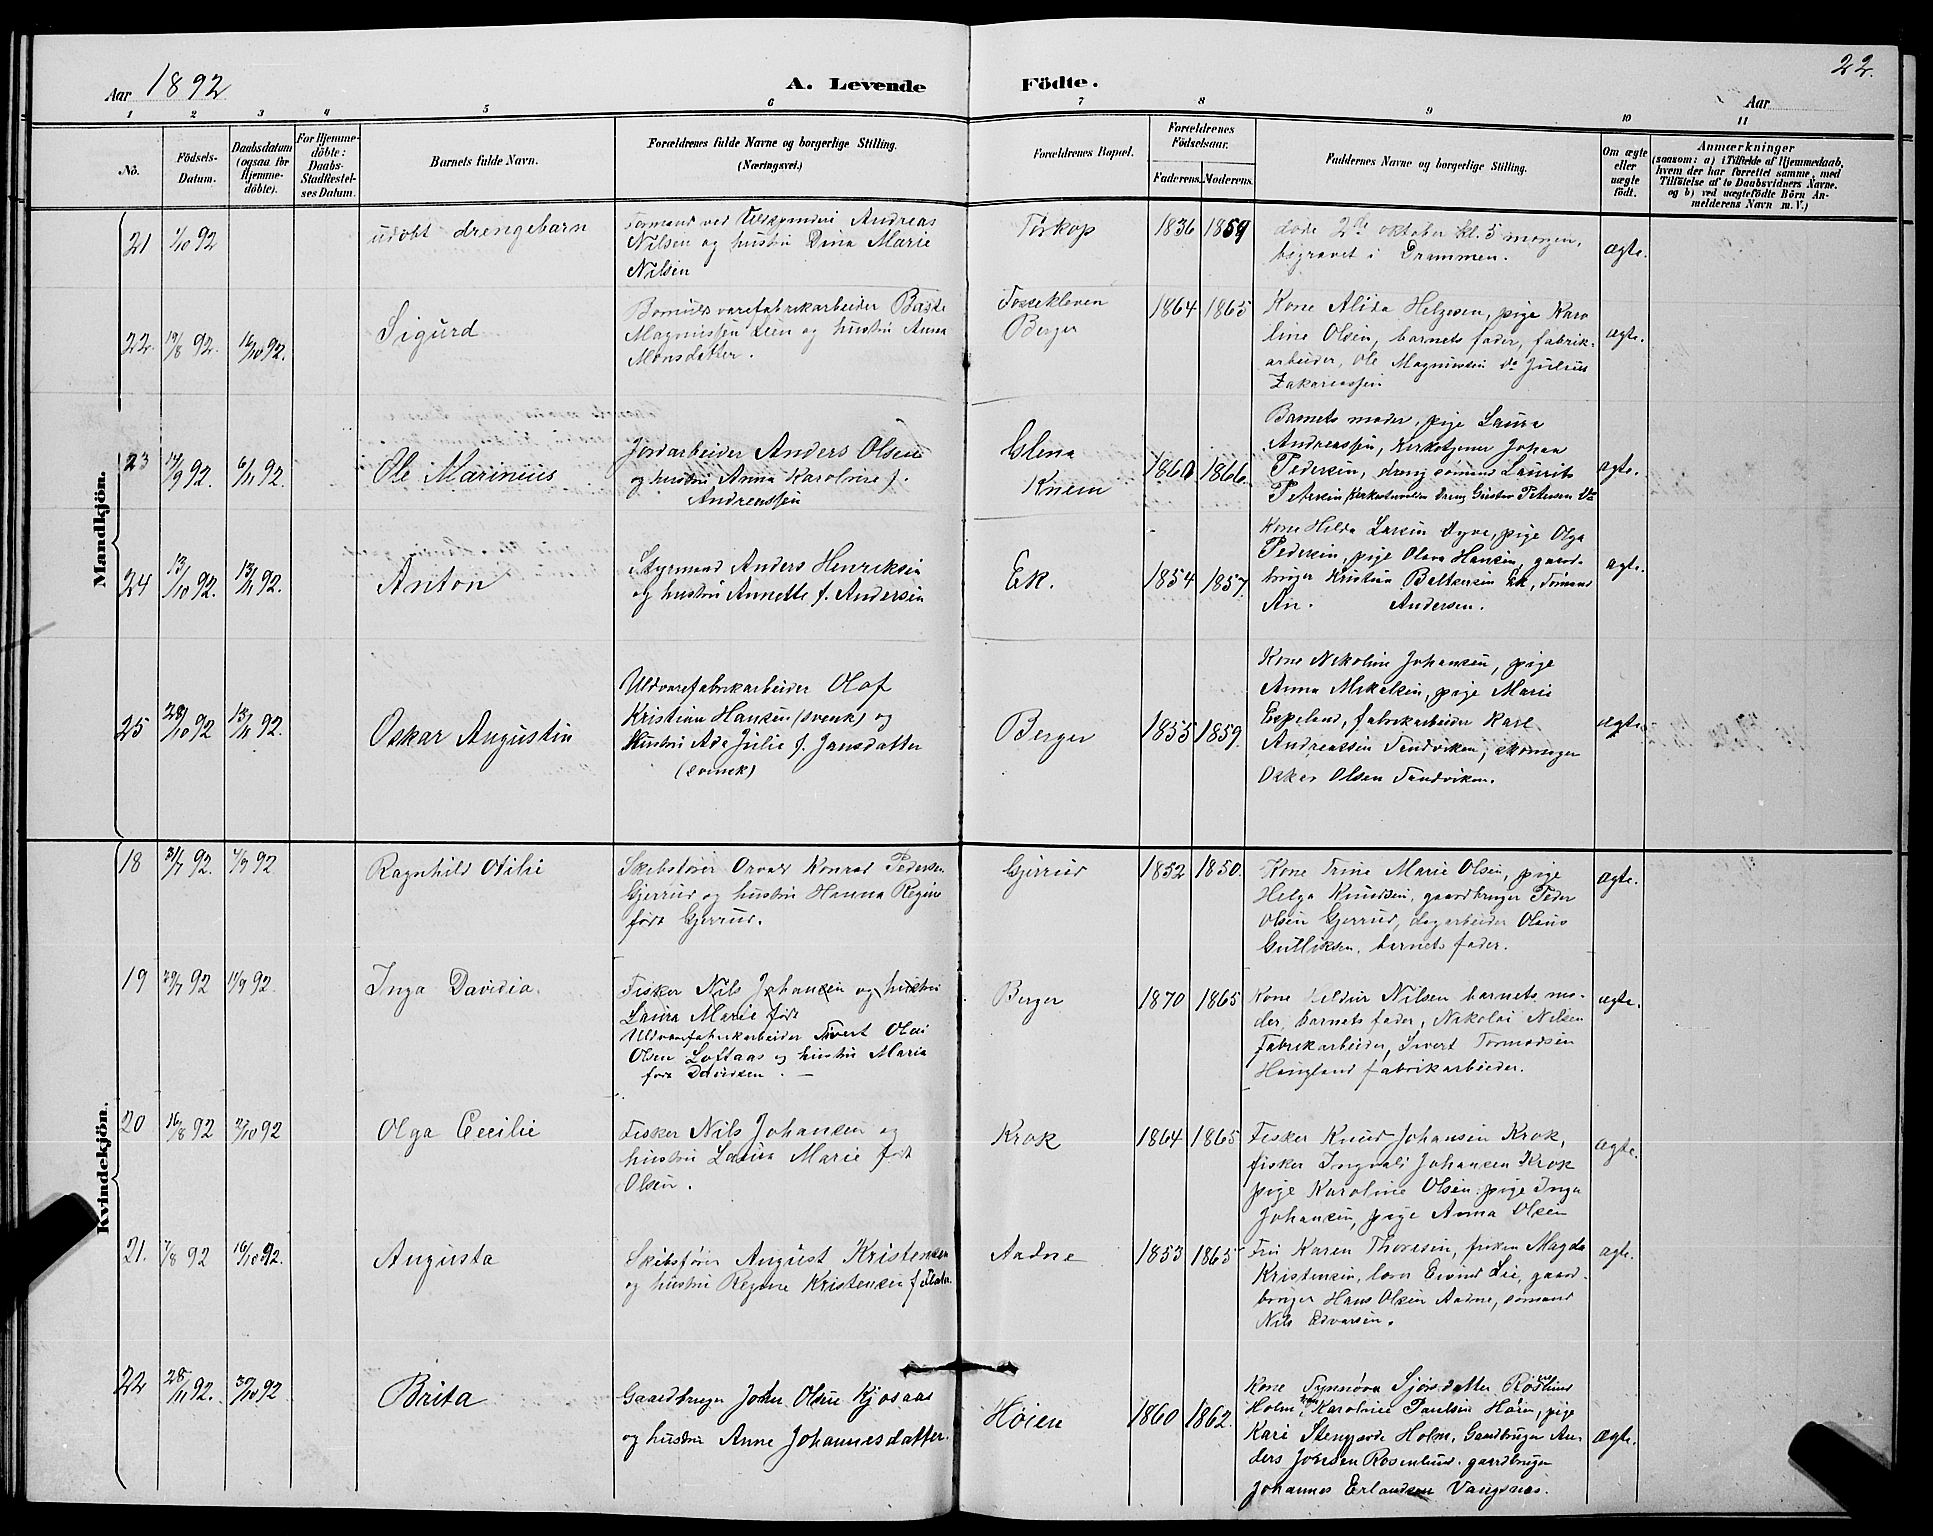 Aar 1892
A. Levende Födte.
22.
Aar
1 2 3 4 5 6 7 8 9 10 11
No.
Födsels-Datum.
Daabsdatum (ogsaa for Hjemme-döbte).
For Hjemme-döbte: Daabs-Stadfæstel-ses Datum.
Barnets fulde Navn.
Forældrenes fulde Navne og borgerlige Stilling. (Næringsvei.)
Forældrenes Bopæl.
Forældrenes Födselsaar.
Faderens. Moderens.
Faddernes Navne og borgerlige Stilling.
Om ægte eller uægte födt.
Anmærkninger
(saasom: a) i Tilfælde af Hjemmedaab, hvem der har forrettet samme, med Tilföielse af to Daabsvidners Navne, og b) ved uægtefödte Börn Anmelderens Navn m. V.)
Mandkjön.
21 1/10 92
udøbt drengebarn
Andreas
Nilsen og hustru Dina Marie
Nilsen
Torkop
1836 1859
døde 2den oktober kl. 5 morgen,
begravet i Drammen.
ægte.
22. 19/8 92. 16/10 92.
Sigurd
Bomuldsvarefabrikarbeider
Magnussen Lein og hustru Anna
Monsdatter.
Fossekleven
Berger
1864 1865
Kone Alida Helgesen, pige Karo
line Olsen, barnets fader, fabrik-
arbeider, Ole Magnussen do Julius
Zakariassen
ægte.
23 14/9 92. 6/11 92.
Ole Marinius
Jordarbeider Anders Olsen
og hustru Anna Karoline f.
Andreassen
Glena
Knem
1860 1866
Barnets moder, pige Laura
Andreassen, Kirketjener Johan
Pedersen, dreng sømand Laurits
Petersen Kirkestuvolden dreng Gustav Petersen do
ægte.
24 13/10 92. 13/11 92.
Anton
Styrmand Anders Henriksen
og hustru Annette f. Andersen
Ek.
1854 1857.
Kone Helda Larsen Dyve, pige Olga
Pedersen, pige Olava Hansen, gaard-
bruger Kristian Beltersen Ek, sømand
An. Andersen.
ægte.
25 28/10 92 13/11 92.
Oskar Augustin
Uldvarefabrikarbeider Olaf
Kristian Hansen (svensk) og
Hustru Ada Julie f. Jansdatter
(svensk)
Berger
1855 1859.
Kone Nikoline Johansen, pige
Anna Mikalsen, pige Marie
Espeland, fabrikarbeider Karl
Andreassen Tandviken, skomager
Oskar Olsen Tandviken.
ægte.
Kvindekjön.
18 31/7 92. 4/9 92
Ragnhild Otilie
Skibsfører Orvald Konrad Pedersen
Gjerrud og hustru Hanna Regine
født Gjerrud.
Gjerrud
1852 1850.
Kone Trine Marie Olsen, pige
Helga Knudsen, gaardbruger Peder
Olsen Gjerrud, dagarbeider Olaus
Gulliksen, barnets fader.
ægte.
19 29/7 92 11/9 92.
Inga Davidia.
Fisker Nils Johansen og hustru
Laura Marie født
Uldvarefabrikarbeider Sivert Olai
Olsen Loftaas og hustru Maria
født Davidsen.
Berger
1870 1865
Kone Nilsen barnets mo-
der, barnets fader, Nikolai Nilsen
fabrikarbeider, Sivert Tormodsen
Haugland fabrikarbeider.
ægte.
20 16/8 92 2/10 92
Olga Cecilie
Fisker Nils Johansen og
hustru Laura Marie født
Olsen.
Krok
1864 1865
Fisker Knud Johansen Krok,
fisker Ingvald Johansen Krok
pige Karoline Olsen, pige Inga
Johansen, pige Anna Olsen
ægte.
21. 7/8 92 16/10 92.
Augusta
Skibsfører August Kristensen
og hustru Regine Kristensen f.
Aadne
1853 1865
Fru Karen Thoresen, frøken Magda
Kristensen, Eivind Lie, gaard-
bruger Hans Olsen Aadne, sømand
Nils Edvarsen.
ægte.
22 28/11 92. 3/10 92
Brita
Gaardbruger John Olsen Kjosaas
og hustru Anne Johannesdatter.
Høien
1860 1862.
Kone Synnøva Sjursdatter
Holm, Karoline Paulsen Høien, pige
Kari Stengjorde Holm, Gaardbruger An-
ders Joensen Rosenlund, gaardbruger
Johannes Erlandsen Vangsnes.
ægte.